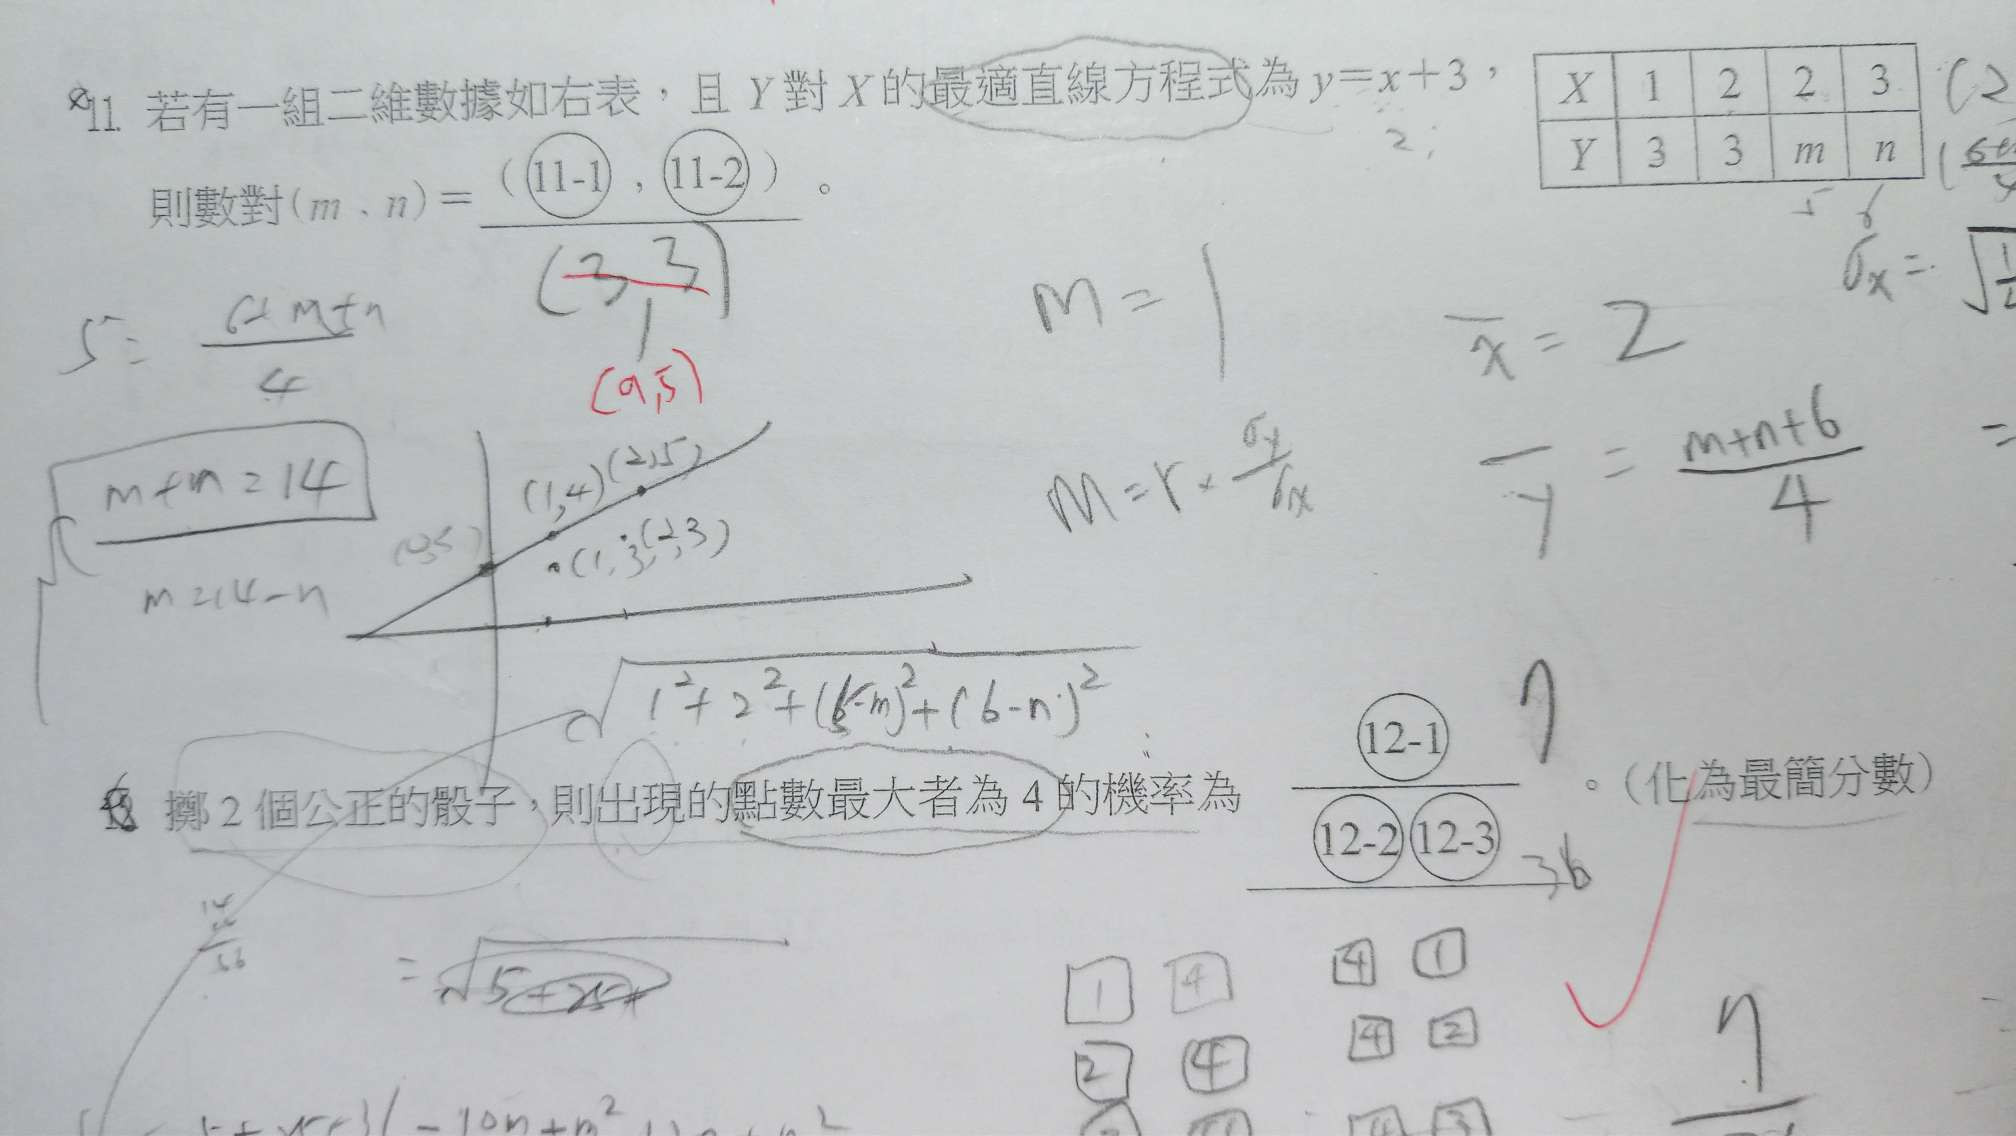 11. 若有一組二維數據如右表，且 Y 對 X 的最適直線方程式為 y＝x＋3，
X 1 2 2 3
Y 3 3 m n
(2
則數對(m、n)＝ (11-1，11-2)。
5 6
(3, 3)
(9,5)
5 = 6+m+n / 4
m = 1
x̄ = 2
σx = √
m+n=14
m=14-n
(1,4) (2,5)
(1,3) (2,3)
m = r × σy / σx
ȳ = m+n+6 / 4
√1²+2²+(5-m)²+(6-n)²
擲 2 個公正的骰子，則出現的點數最大者為 4 的機率為 12-1 / 12-2 12-3 。(化為最簡分數)
7
36
1 4 4 1
2 4 4 2
3
7